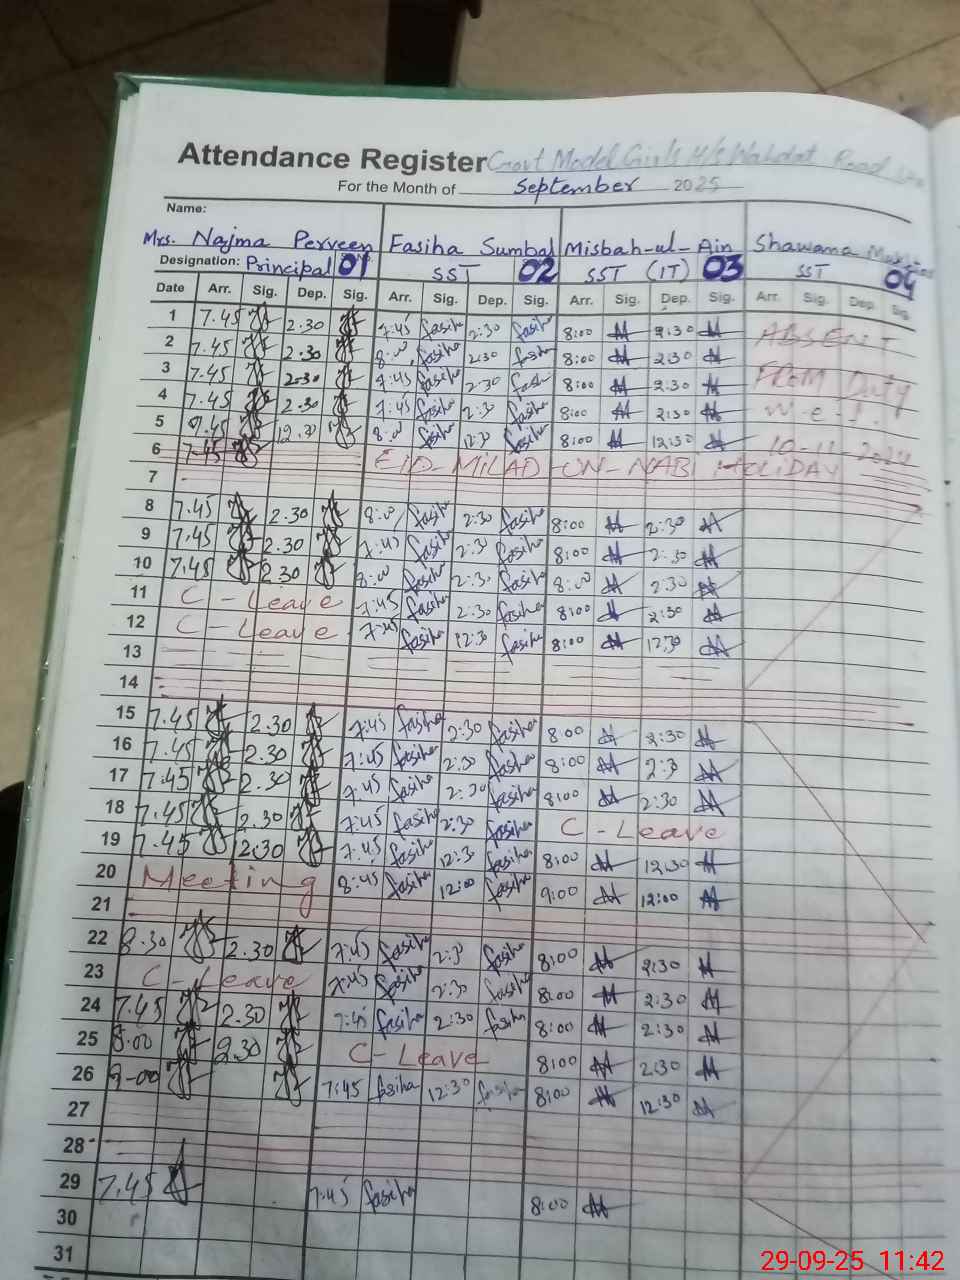 Attendance Register Govt Model Girls H/S Wahdat Road
For the Month of September 2025
Name:
Mrs. Najma Perveen Fasiha Sumbal Misbah-ul-Ain Shawana
Designation: Principal 01 SST 02 SST (IT) 03 SST 04
Date Arr. Sig. Dep. Sig. Arr. Sig. Dep. Sig. Arr. Sig. Dep. Sig. Arr. Sig. Dep. Sig.
1 7.45 2.30 7:45 fasiha 2:30 fasiha 8:00 2:30 ABSENT
2 7.45 2.30 8:00 fasiha 2:30 fasiha 8:00 2:30
3 7.45 2.30 7:45 fasiha 2:30 fasiha 8:00 2:30 FROM Duty
4 7.45 2.30 7:45 fasiha 2:30 fasiha 8:00 2:30 w.e.f.
5 7.45 12.30 8:00 fasiha 12:30 fasiha 8:00 12:30 10-11-2024
6 7.45 EID-MILAD-UN-NABI HOLIDAY
7
8 7.45 2.30 8:00 fasiha 2:30 fasiha 8:00 2:30
9 7.45 2.30 7:45 fasiha 2:30 fasiha 8:00 2:30
10 7.45 2.30 8:00 fasiha 2:30 fasiha 8:00 2:30
11 C-Leave 7:45 fasiha 2:30 fasiha 8:00 2:30
12 C-Leave 7:45 fasiha 12:30 fasiha 8:00 12:30
13
14
15 7.45 2.30 7:45 fasiha 2:30 fasiha 8:00 2:30
16 7.45 2.30 7:45 fasiha 2:30 fasiha 8:00 2:3
17 7.45 2.30 7:45 fasiha 2:30 fasiha 8:00 2:30
18 7.45 2.30 7:45 fasiha 2:30 fasiha C-Leave
19 7.45 2:30 7:45 fasiha 12:30 fasiha 8:00 12:30
20 Meeting 8:45 fasiha 12:00 fasiha 9:00 12:00
21
22 8.30 2.30 7:45 fasiha 2:30 fasiha 8:00 2:30
23 C-Leave 7:45 fasiha 2:30 fasiha 8:00 2:30
24 7.45 2.30 7:45 fasiha 2:30 fasiha 8:00 2:30
25 8.00 2.30 C-Leave 8:00 2:30
26 9-00 7:45 fasiha 12:30 fasiha 8:00 12:30
27
28
29 7.45 7:45 fasiha 8:00
30
31
29-09-25 11:42